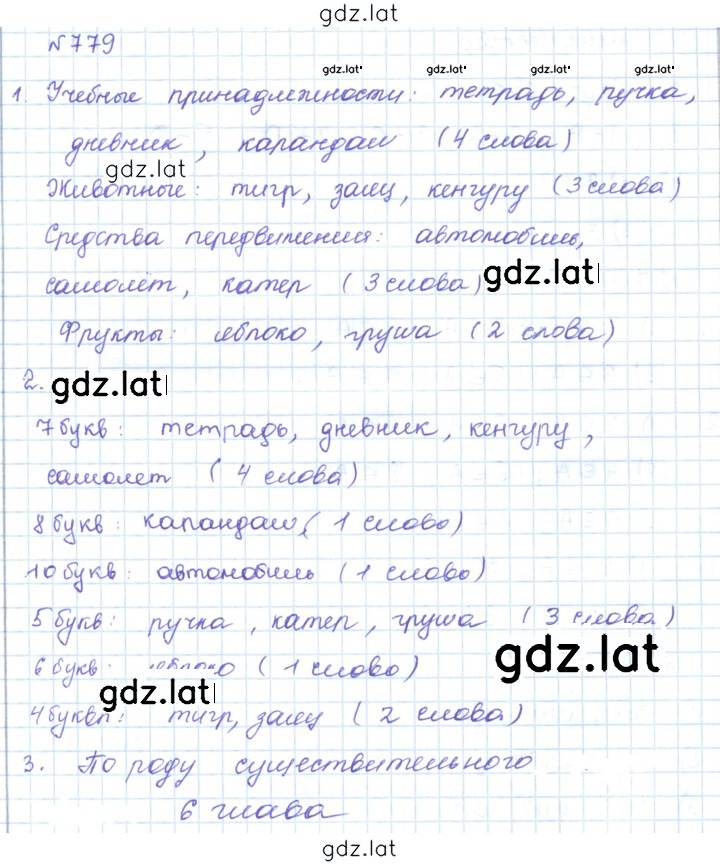 gdz.lat
№779
gdz.lat gdz.lat gdz.lat gdz.lat
1. Учебные принадлежности: тетрадь, ручка,
дневник, карандаш (4 слова)
gdz.lat
Животные: тигр, заяц, кенгуру (3 слова)
Средства передвижения: автомобиль,
самолёт, катер (3 слова)
gdz.lat
Фрукты: яблоко, груша (2 слова)
2. gdz.lat
7 букв: тетрадь, дневник, кенгуру,
самолет (4 слова)
8 букв: карандаш, (1 слово)
10 букв: автомобиль (1 слово)
5 букв: ручка, катер, груша (3 слова)
gdz.lat
6 букв: яблоко (1 слово)
gdz.lat
4 буквы: тигр, заяц (2 слова)
3. По роду существительного
6 глава
gdz.lat